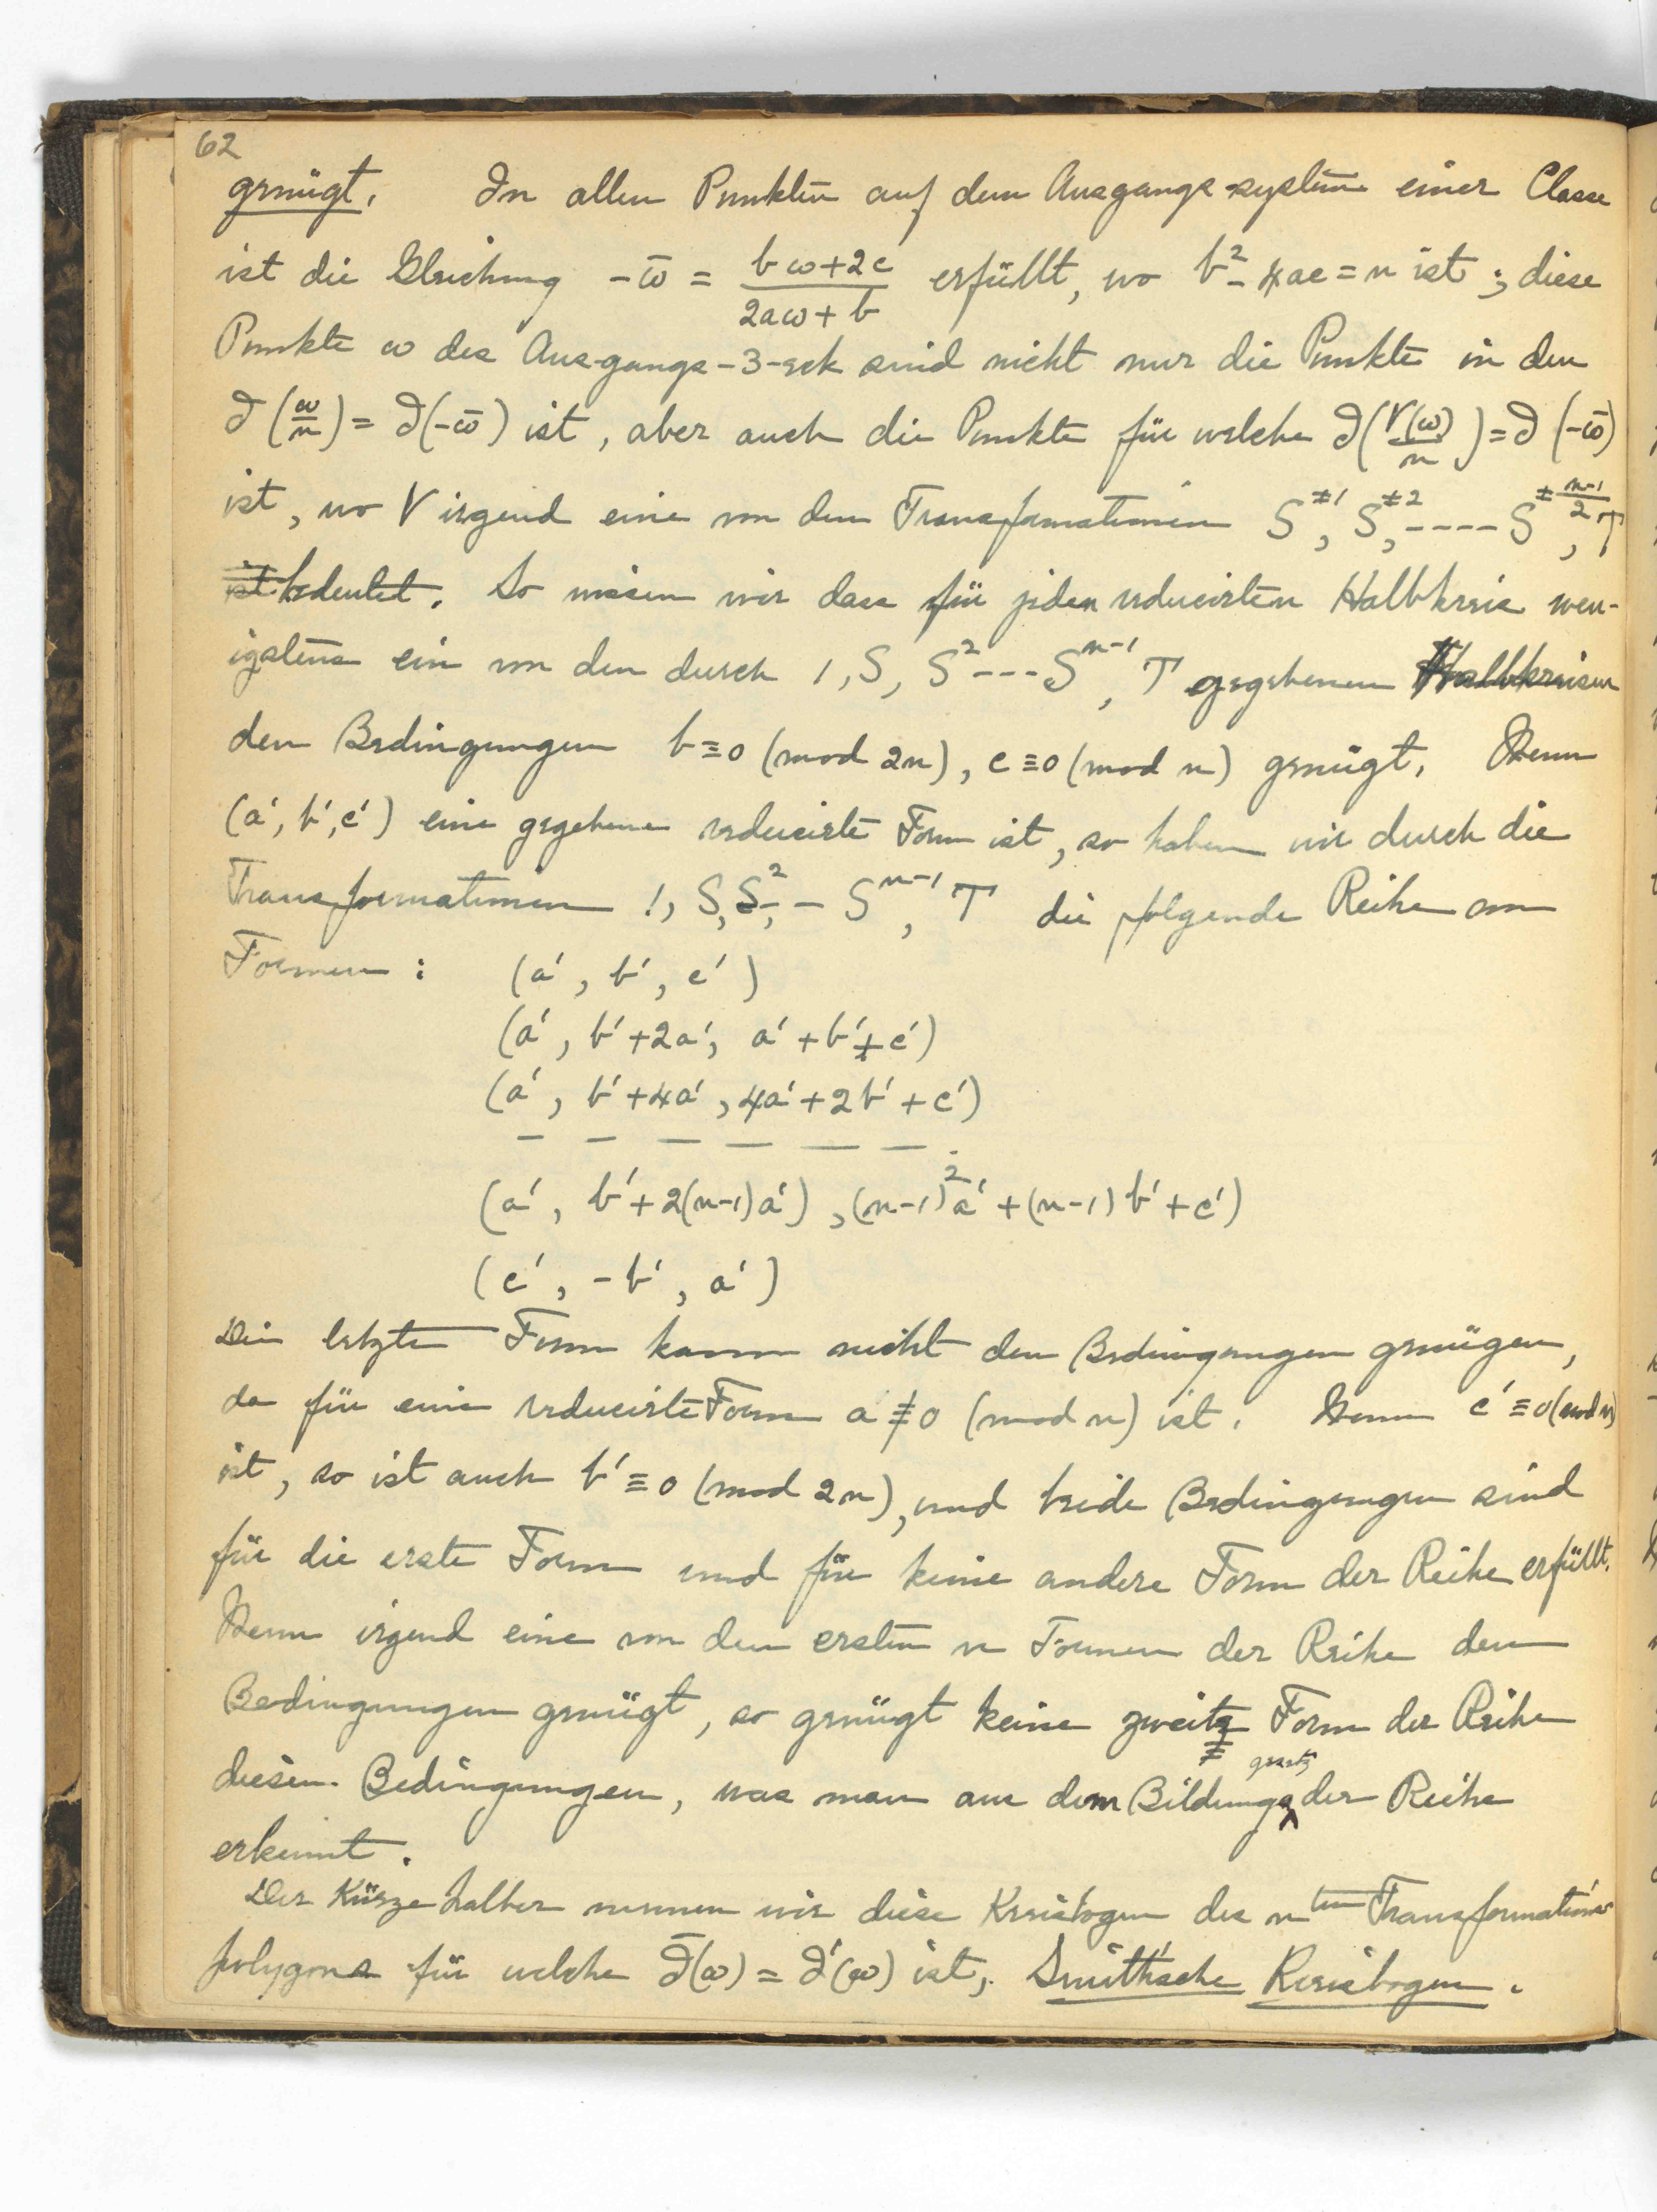 62
genügt. In allen Punkten auf dem Ausgangs-system einer Classe
ist die Gleichung -ω̄ = (bω+2c)/(2aω+b) erfüllt, wo b²-4ac=n ist; diese
Punkte ω des Ausgangs-3-eck sind nicht nur die Punkte in den
∂(ω/n) = ∂(-ω̄) ist, aber auch die Punkte für welche ∂(V(ω)/n) = ∂(-ω̄)
ist, wo V irgend eine von den Transformationen S^{±1}, S^{±2}, ---- S^{±(n-1)/2}, T
ist bedeutet. So wissen wir dass für jeden reducirten Halbkreis wen-
igstens ein von den durch 1, S, S² --- S^{n-1}, T gegebenen Halbkreisen
den Bedingungen b≡0 (mod 2n), c≡0 (mod n) genügt. Wenn
(a', b', c') eine gegebene reducirte Form ist, so haben wir durch die
Transformationen 1, S, S², -- S^{n-1}, T die folgende Reihe von
Formen: (a', b', c')
(a', b'+2a', a'+b'+c')
(a', b'+4a', 4a'+2b'+c')
— — — — — — -
(a', b'+2(n-1)a'), (n-1)²a'+(n-1)b'+c')
(c', -b', a')
Die letzte Form kann nicht den Bedingungen genügen,
da für eine reducirte Form a≢0 (mod n) ist. Wenn c'≡0 (mod n)
ist, so ist auch b'≡0 (mod 2n), und beide Bedingungen sind
für die erste Form und für keine andere Form der Reihe erfüllt.
Wenn irgend eine von den ersten n Formen der Reihe den
Bedingungen genügt, so genügt keine zweite Form der Reihe
diesen Bedingungen, was man aus dem Bildungsgesetz der Reihe
erkennt.
Der Kürze halber nennen wir diese Kreisbogen des n^{ten} Transformations
polygons für welche ∂̄(ω) = ∂'(ω) ist, Smith'sche Kreisbogen.